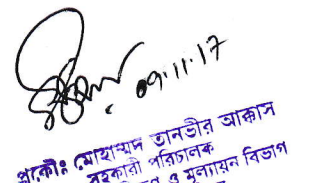 09.11.17
প্রকৌঃ মোহাম্মদ তানভীর আক্কাস
সহকারী পরিচালক
ও মূল্যায়ন বিভাগ